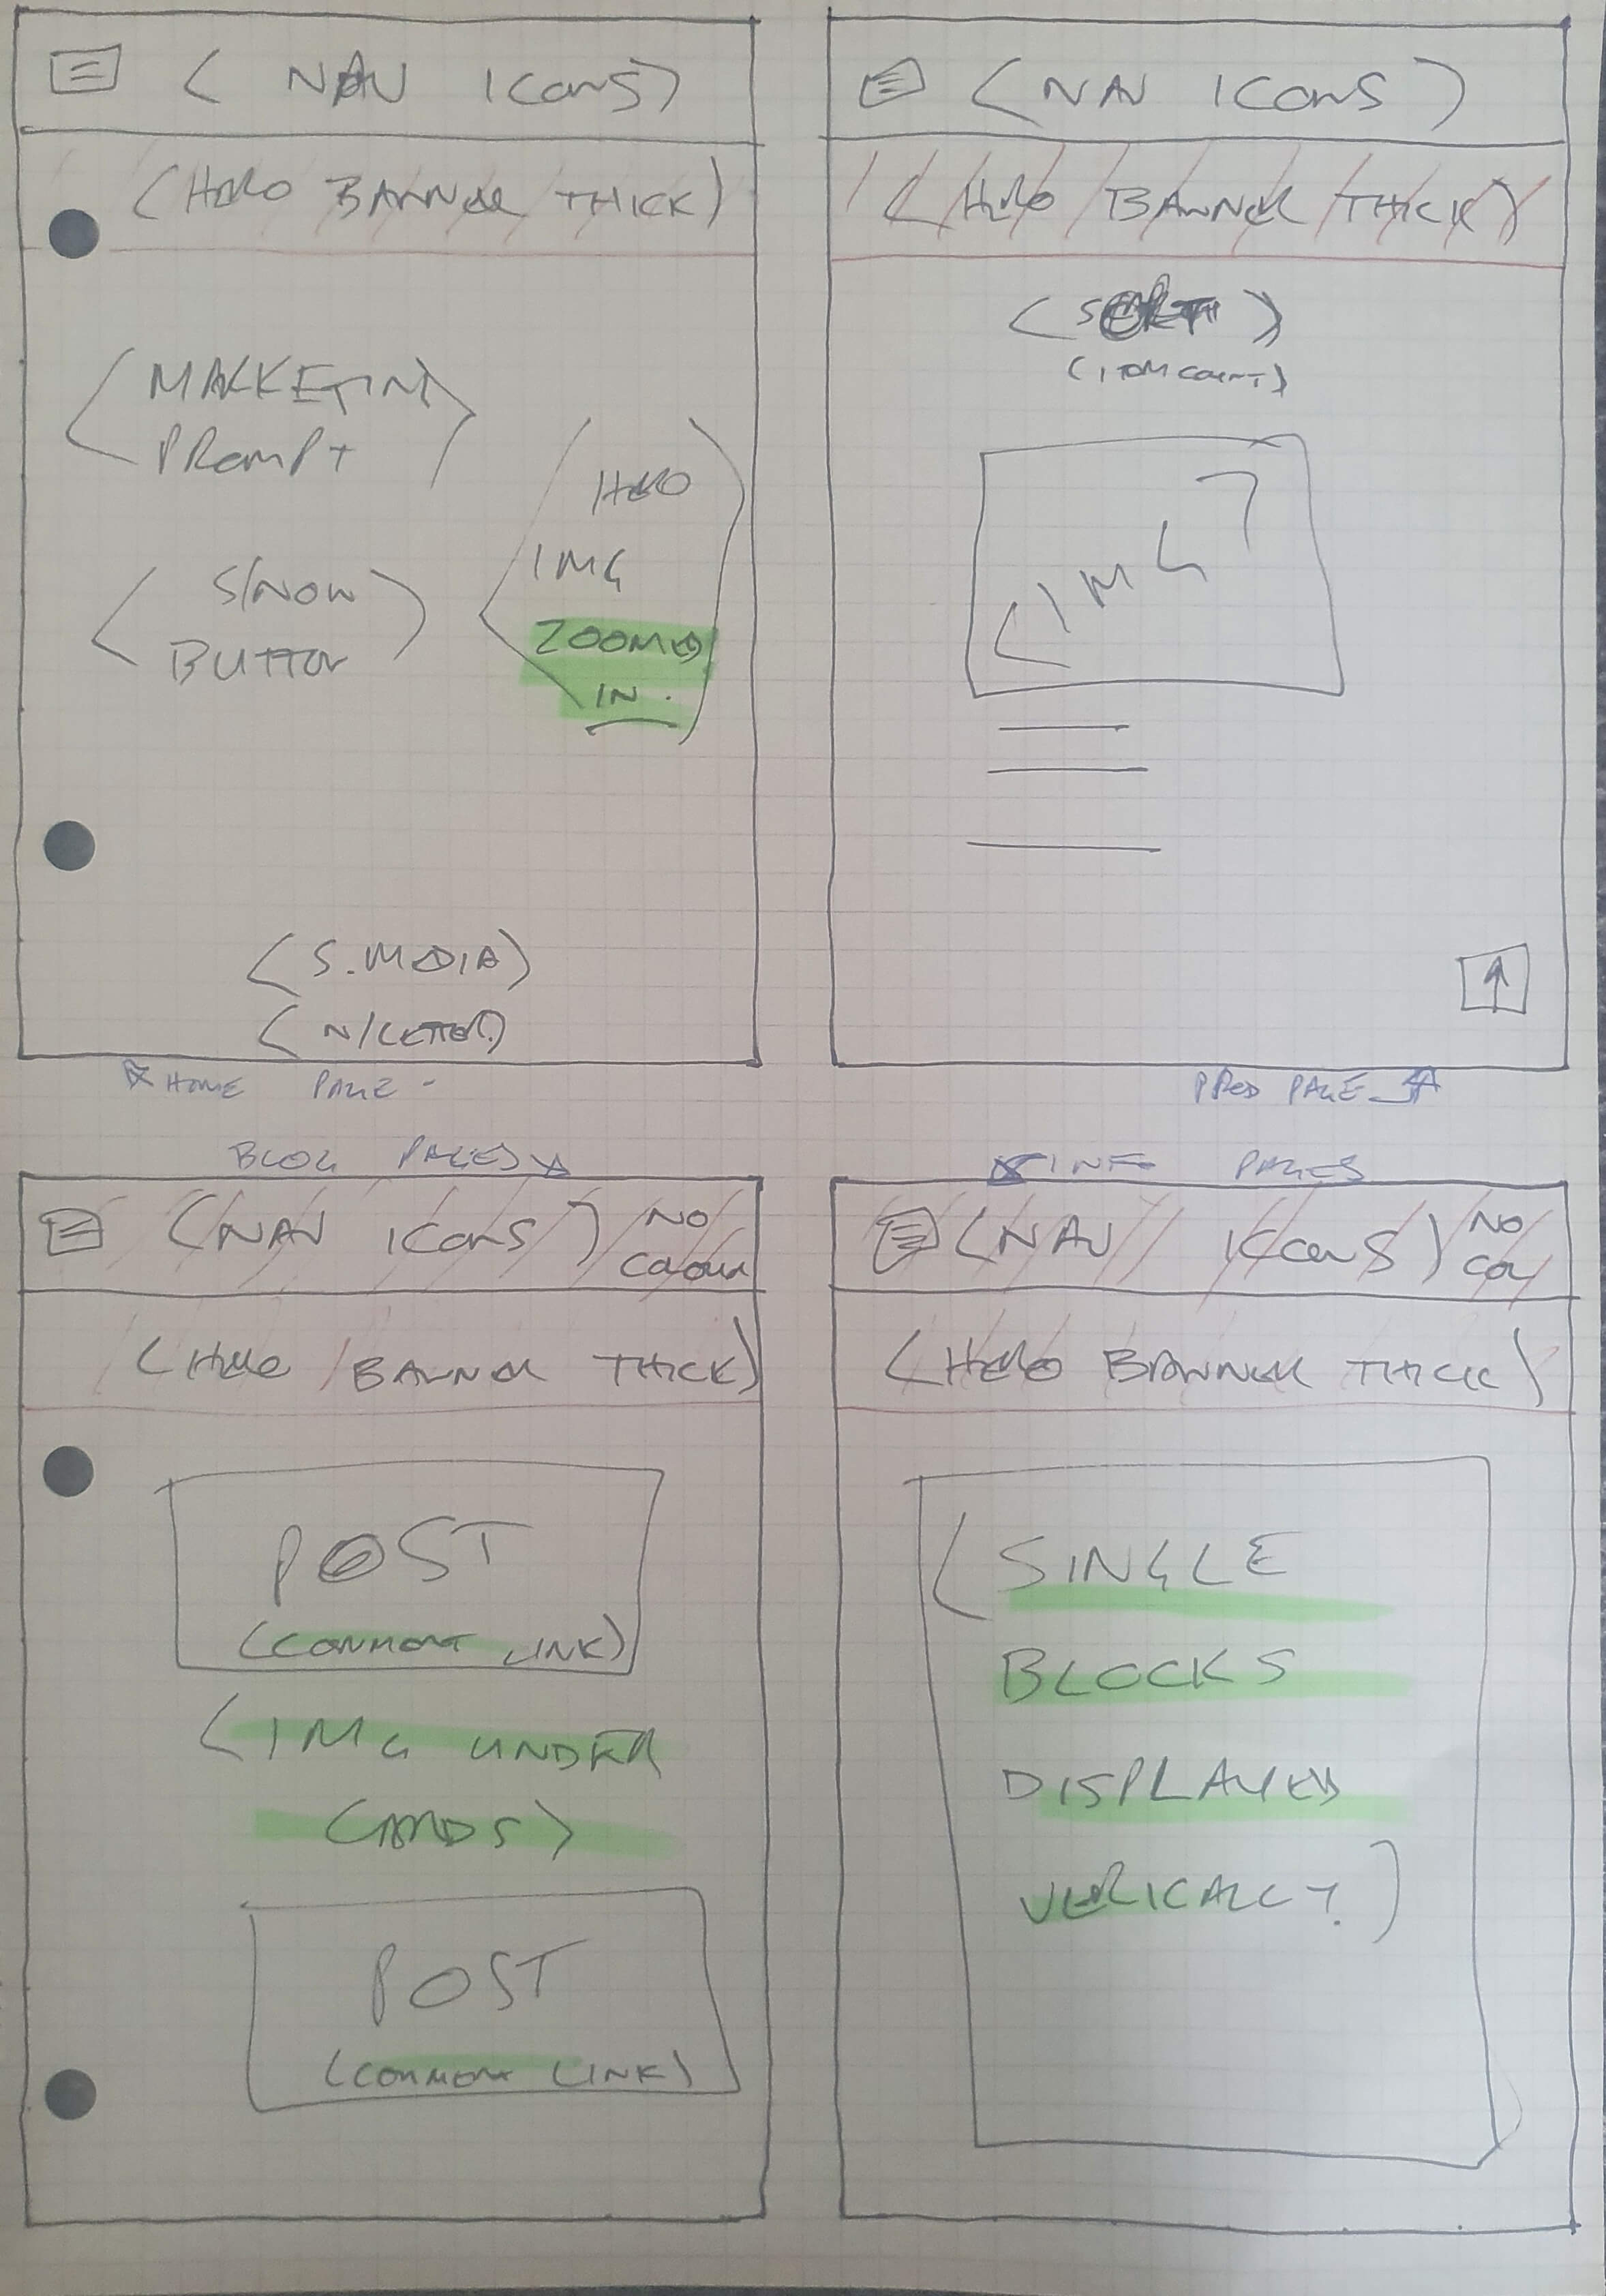 ( NAV ICONS)
(HERO BANNER THICK)
(MARKETING
PROMPT
HERO
IMG
ZOOMED
IN.
S/NOW
BUTTON
(S.MEDIA)
(N/LETTER)
HOME PAGE -
(NAV ICONS)
(HERO BANNER THICK)
(ITEM COUNT)
<IMG>
PROD PAGE
BLOG PAGES
(NAV ICONS) NO
COLOUR
(HERO BANNER THICK)
POST
(COMMENT LINK)
(IMG UNDER
CARDS)
POST
(COMMENT LINK)
INFO PAGES
(NAV ICONS) NO
COL
(HERO BANNER THICK)
(SINGLE
BLOCKS
DISPLAYED
VERICALLY.)